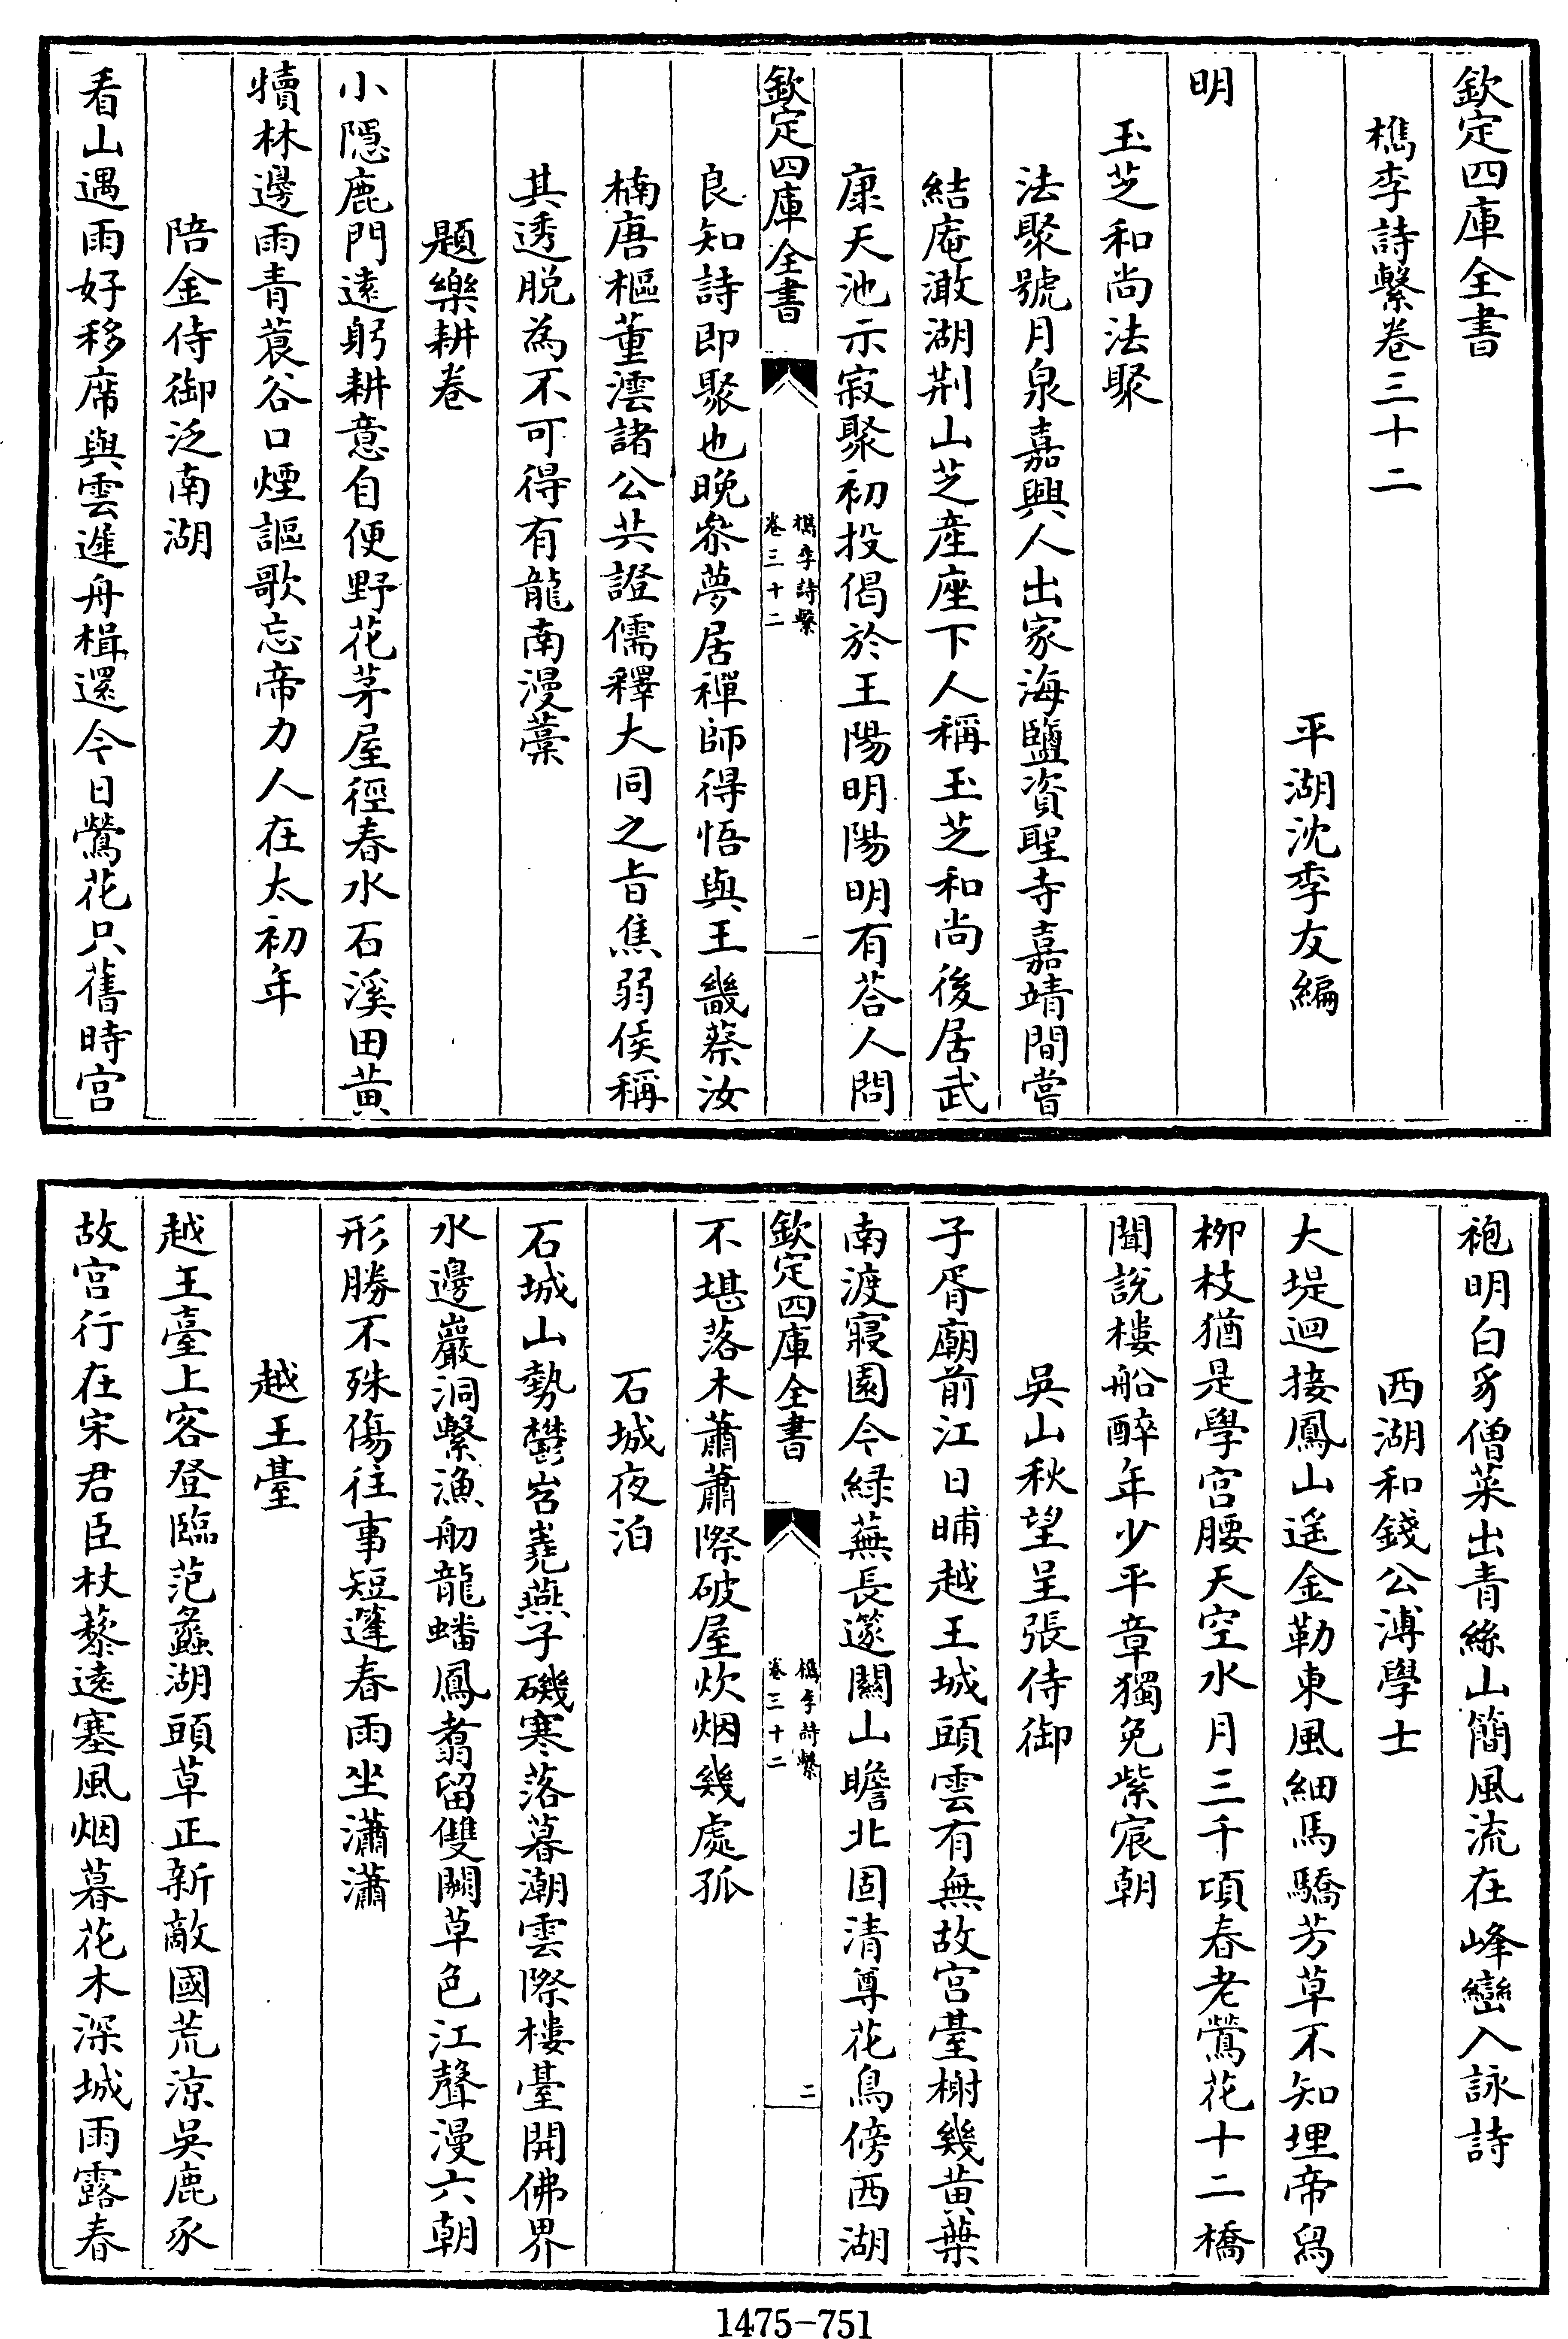 欽定四庫全書
檇李詩繫卷三十二
平湖沈季友編
明
玉芝和尚法聚
法聚號月泉嘉興人出家海鹽資聖寺嘉靖間嘗
結庵澉湖荆山芝産座下人稱玉芝和尚後居武
康天池示寂聚初投偈於王陽明陽明有荅人問
欽定四庫全書
檇李詩繫
卷三十二
一
良知詩即聚也晚叅夢居禪師得悟與王畿蔡汝
楠唐樞董澐諸公共證儒釋大同之旨焦弱侯稱
其透脱為不可得有龍南漫藁
題樂耕卷
小隱鹿門遠躬耕意自便野花茅屋徑春水石溪田黄
犢林邊雨青蓑谷口煙謳歌忘帝力人在太初年
陪金侍御泛南湖
看山遇雨好移席與雲遲舟楫還今日鶯花只舊時宫
袍明白豸僧菜出青絲山簡風流在峰巒入詠詩
西湖和錢公溥學士
大堤迴接鳳山遥金勒東風細馬驕芳草不知埋帝舄
柳枝猶是學宫腰天空水月三千頃春老鶯花十二橋
聞説樓船醉年少平章獨免紫宸朝
吳山秋望呈張侍御
子胥廟前江日晡越王城頭雲有無故宫臺榭幾黄葉
南渡寢園今緑蕪長邃關山瞻北固清尊花鳥傍西湖
欽定四庫全書
檇李詩繫
卷三十二
二
不堪落木蕭蕭際破屋炊烟幾處孤
石城夜泊
石城山勢鬱岧嶤燕子磯寒落暮潮雲際樓臺開佛界
水邊巖洞繫漁舠龍蟠鳳翥留雙闕草色江聲漫六朝
形勝不殊傷往事短篷春雨坐瀟瀟
越王臺
越王臺上客登臨范蠡湖頭草正新敵國荒涼吳鹿豕
故宫行在宋君臣杖藜遠塞風烟暮花木深城雨露春
1475-751